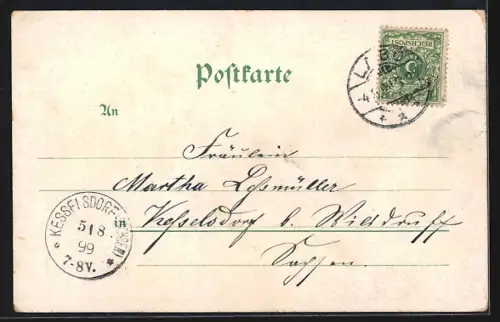 Postkarte
An
Fräulein
Martha Lossmüller
in Kesselsdorf b. Wilsdruff
Sachsen.
KESSELSDORF
5 1 8
99
7-8V.
REICHSPOST
5